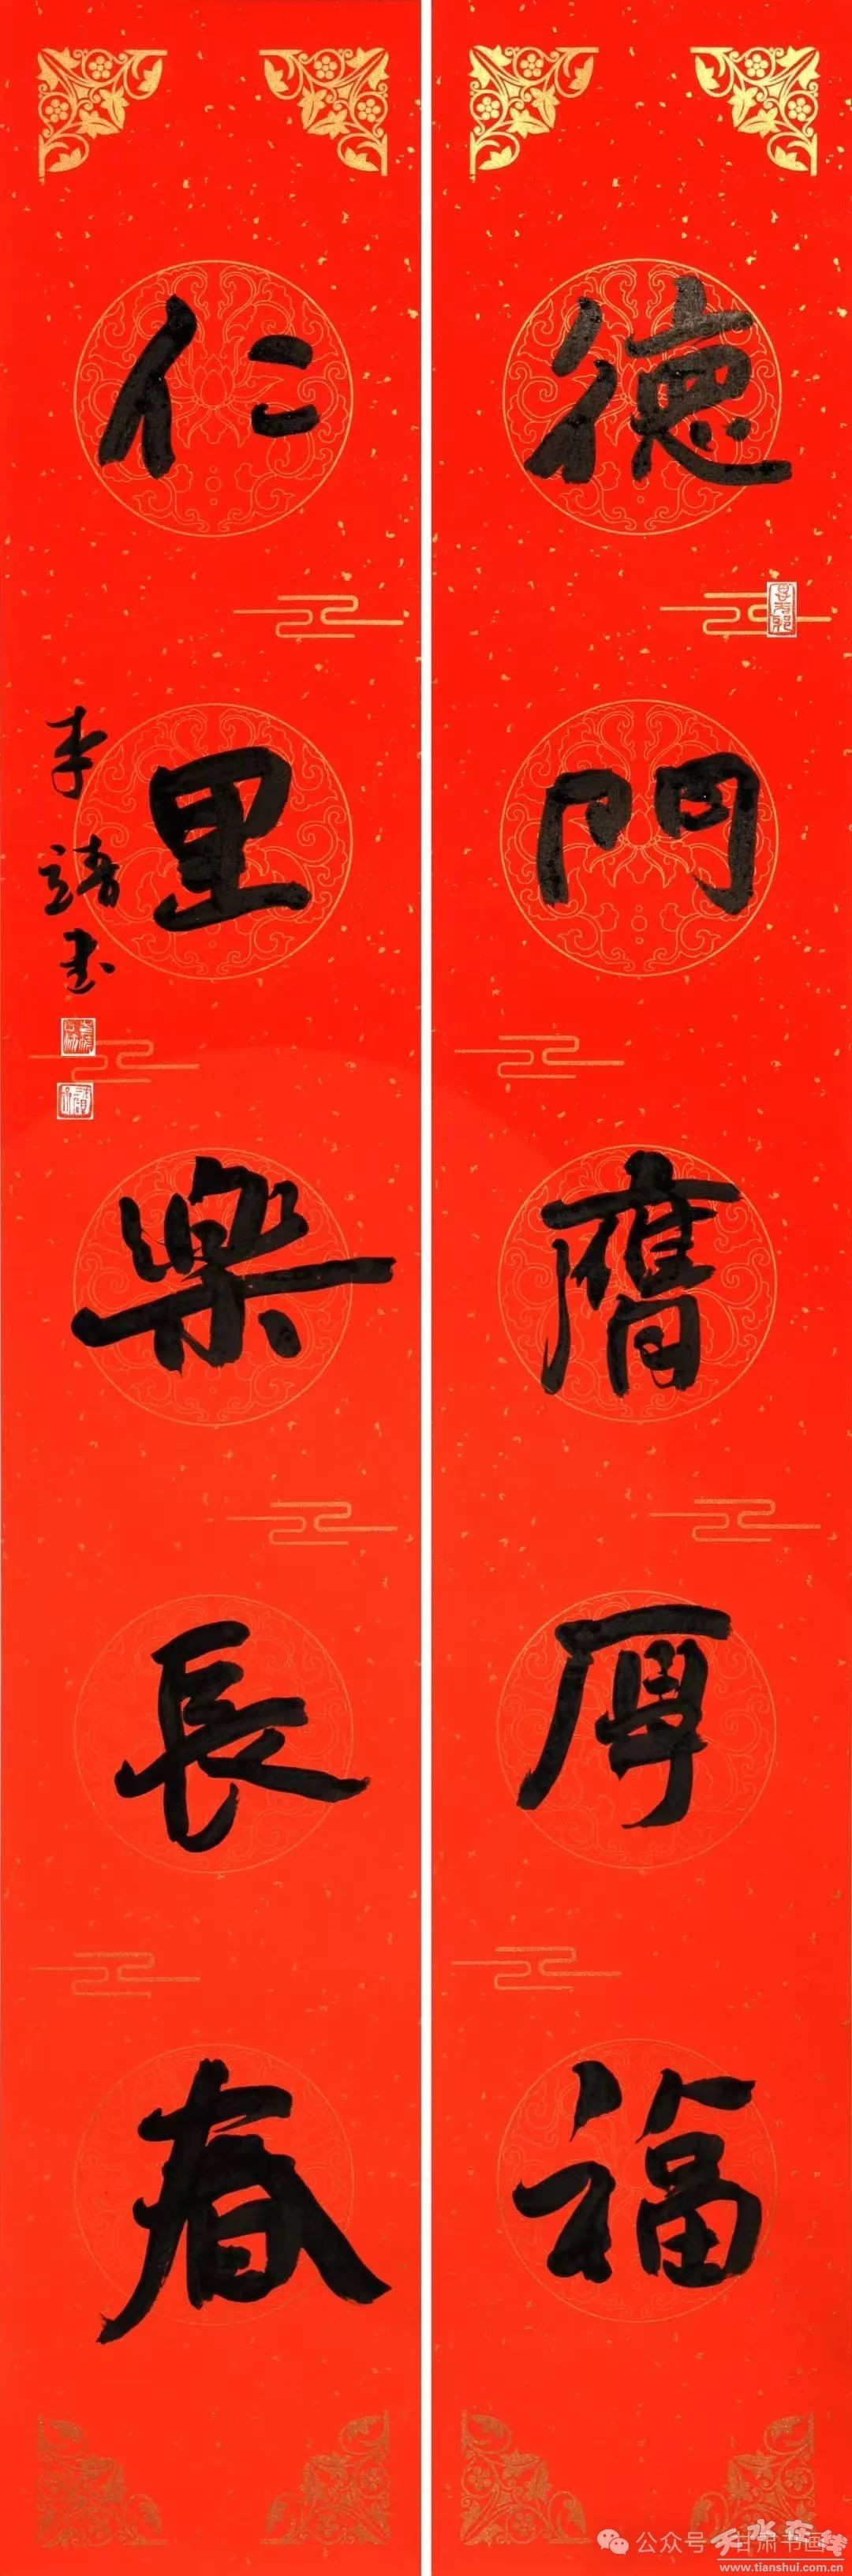 德門膺厚福
仁里樂長春
李靖書
公众号·甘肃书画
天水在线
www.tianshui.com.cn